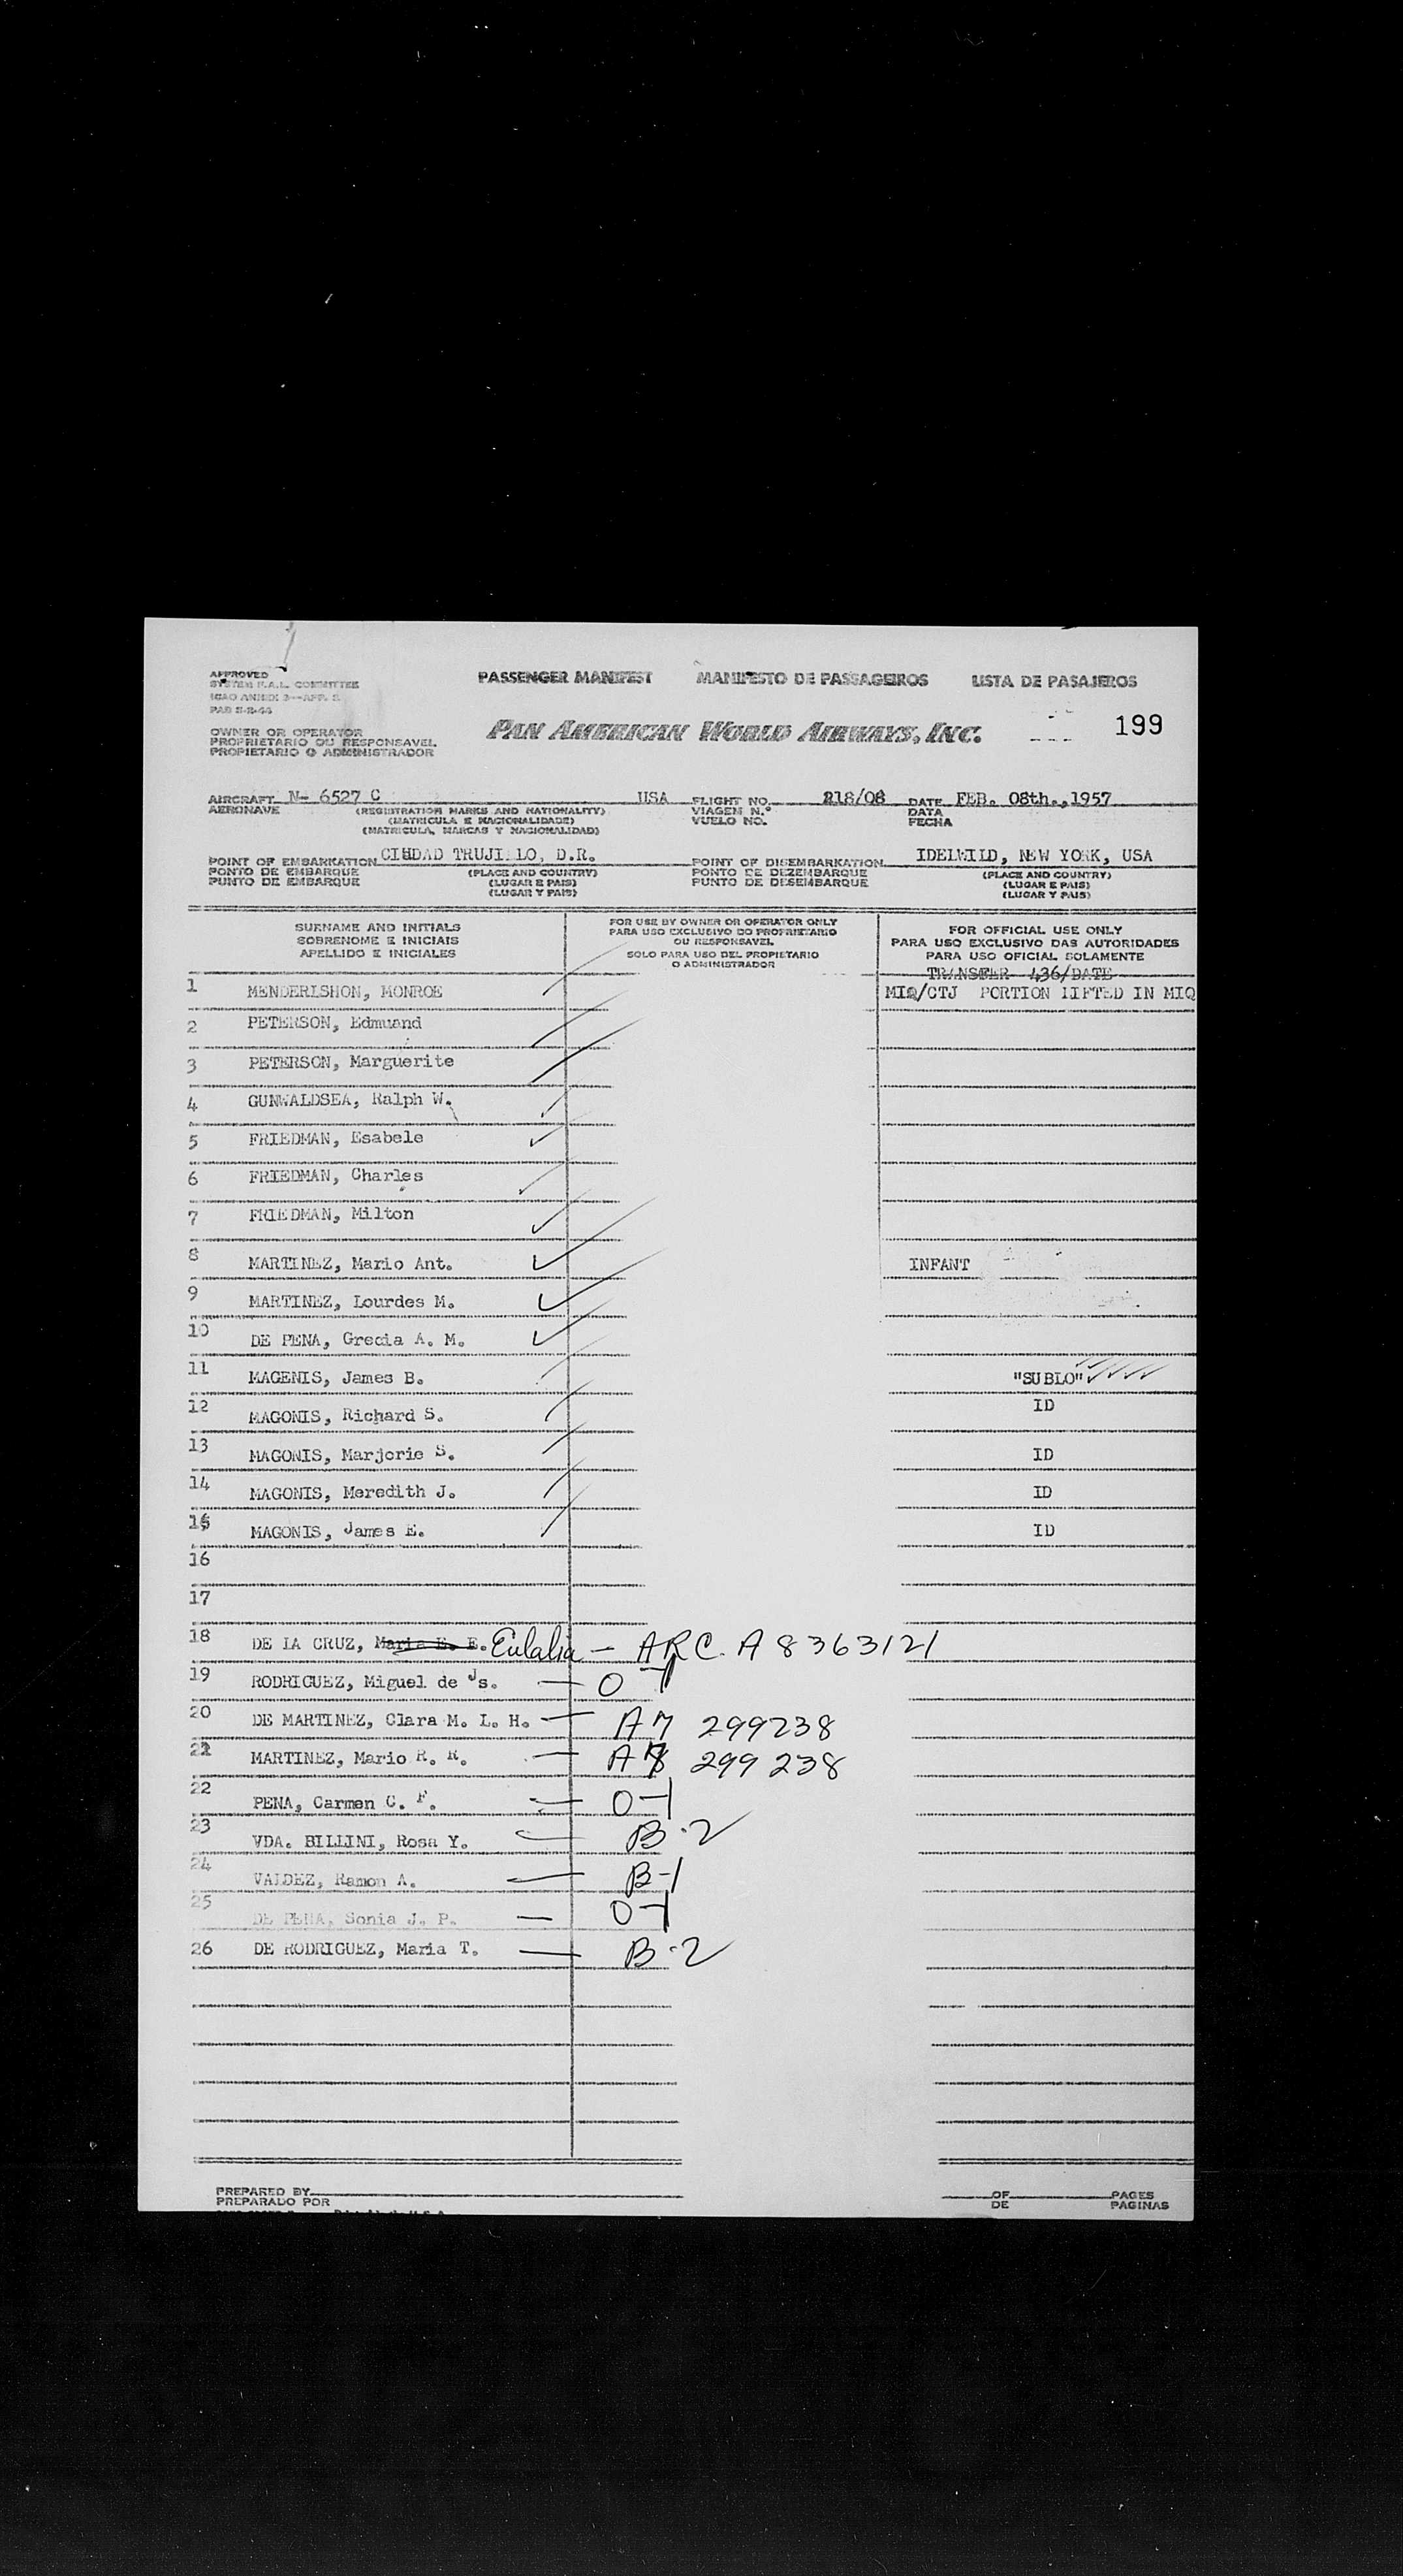 APPROVED
SYSTEM F.A.L. COMMITTEE
ICAO ANNEX 9—APP. 2
PASSENGER MANIFEST MANIFESTO DE PASSAGEIROS LISTA DE PASAJEROS
OWNER OR OPERATOR
PROPRIETARIO OU RESPONSAVEL
PROPIETARIO O ADMINISTRADOR
PAN AMERICAN WORLD AIRWAYS, INC.
199
AIRCRAFT N- 6527 C USA FLIGHT NO. 218/08 DATE FEB. 08th.,1957
AERONAVE (REGISTRATION MARKS AND NATIONALITY) VIAGEM N.° DATA
(MATRICULA E NACIONALIDADE) VUELO NO. FECHA
(MATRICULA, MARCAS Y NACIONALIDAD)
POINT OF EMBARKATION CIUDAD TRUJILLO, D.R. POINT OF DISEMBARKATION IDELWILD, NEW YORK, USA
PONTO DE EMBARQUE (PLACE AND COUNTRY) PONTO DE DEZEMBARQUE (PLACE AND COUNTRY)
PUNTO DE EMBARQUE (LUGAR E PAIS) PUNTO DE DESEMBARQUE (LUGAR E PAIS)
(LUGAR Y PAIS) (LUGAR Y PAIS)
SURNAME AND INITIALS
SOBRENOME E INICIAIS
APELLIDO E INICIALES
FOR USE BY OWNER OR OPERATOR ONLY
PARA USO EXCLUSIVO DO PROPRIETARIO
OU RESPONSAVEL
SOLO PARA USO DEL PROPIETARIO
O ADMINISTRADOR
FOR OFFICIAL USE ONLY
PARA USO EXCLUSIVO DAS AUTORIDADES
PARA USO OFICIAL SOLAMENTE
TRANSFER 436/DATE
1 MENDERLSHON, MONROE MIQ/CTJ PORTION LIFTED IN MIQ
2 PETERSON, Edmuand
3 PETERSON, Marguerite
4 GUNWALDSEA, Ralph W.
5 FRIEDMAN, Esabele
6 FRIEDMAN, Charles
7 FRIEDMAN, Milton
8 MARTINEZ, Mario Ant. INFANT
9 MARTINEZ, Lourdes M.
10 DE PENA, Grecia A. M.
11 MAGENIS, James B. "SUBLO"
12 MAGONIS, Richard S. ID
13 MAGONIS, Marjorie S. ID
14 MAGONIS, Meredith J. ID
15 MAGONIS, James E. ID
16
17
18 DE LA CRUZ, Maria E. E. Eulalia — ARC. A 8363121
19 RODRIGUEZ, Miguel de Js. — O-1
20 DE MARTINEZ, Clara M. L. H. — A7 299238
21 MARTINEZ, Mario R. R. — A8 299 238
22 PENA, Carmen C. F. — O-1
23 VDA. BILLINI, Rosa Y. — B-2
24 VALDEZ, Ramon A. — B-1
25 DE PENA, Sonia J. P. — O-1
26 DE RODRIGUEZ, Maria T. — B-2
PREPARED BY OF PAGES
PREPARADO POR DE PAGINAS